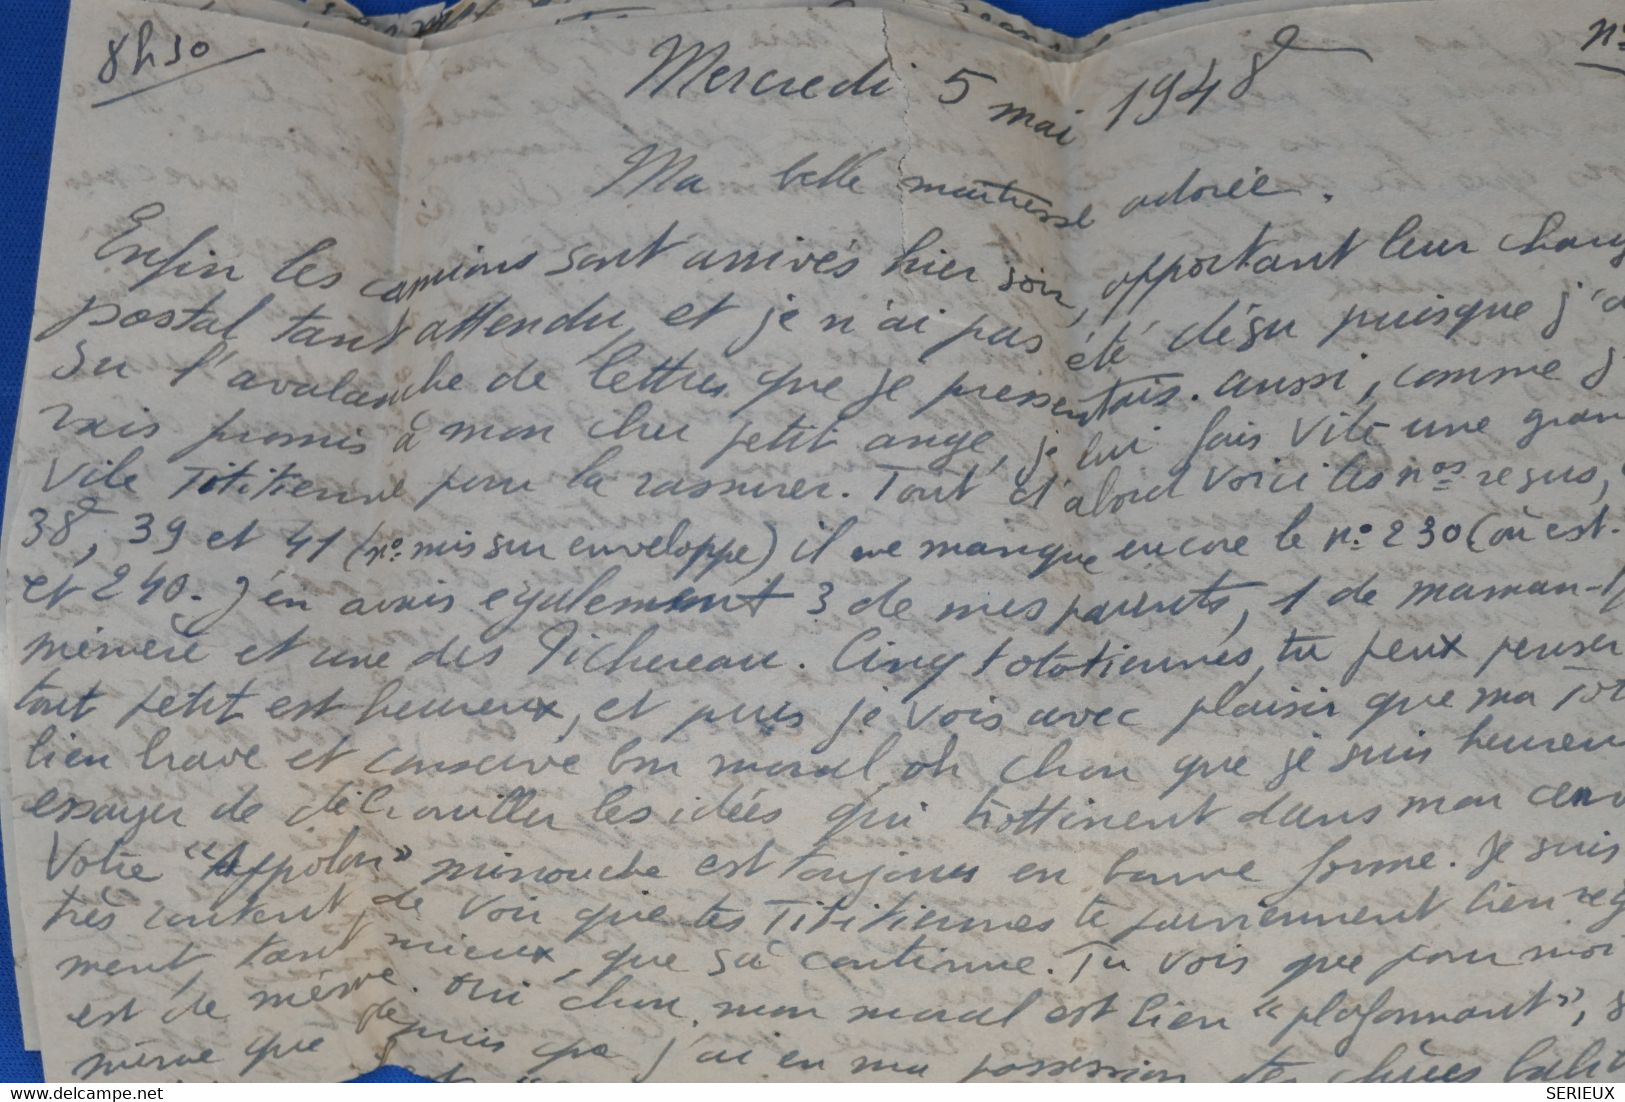 8h30
Mercredi 5 mai 1948
n°
Ma belle maîtresse adorée.
Enfin les camions sont arrivés hier soir, apportant leur charg
postal tant attendu, et je n'ai pas été déçu puisque j'a
su l'avalanche de lettres que je pressentais. aussi, comme j'
vais promis à mon cher petit ange, je lui fais vite une gran
Vile Tititienne pour la rassurer. Tout d'abord voici les nos reçus,
38, 39 et 41 (n° mis sur enveloppe) il me manque encore le n° 230 (où est-
et 240. J'en avais également 3 de mes parents, 1 de maman-
mémère et une des Pichereau. Cinq tototiennes, tu peux penser
tout petit est heureux, et puis je vois avec plaisir que ma Tot
bien brave et conserve bon moral, oh chou que je suis heureu
essayer de débrouiller les idées qui trottinent dans mon cerv
Votre "Appolon" minouche est toujours en bonne forme. Je suis
très content de voir que tes Tititiennes te parviennent bien reg
ment, tant mieux, que sà continue. Tu vois que pour moi
est de même. Oui chou, mon moral est bien "plafonnant", s
même que depuis que j'ai en ma possession tes chères
SERIEUX